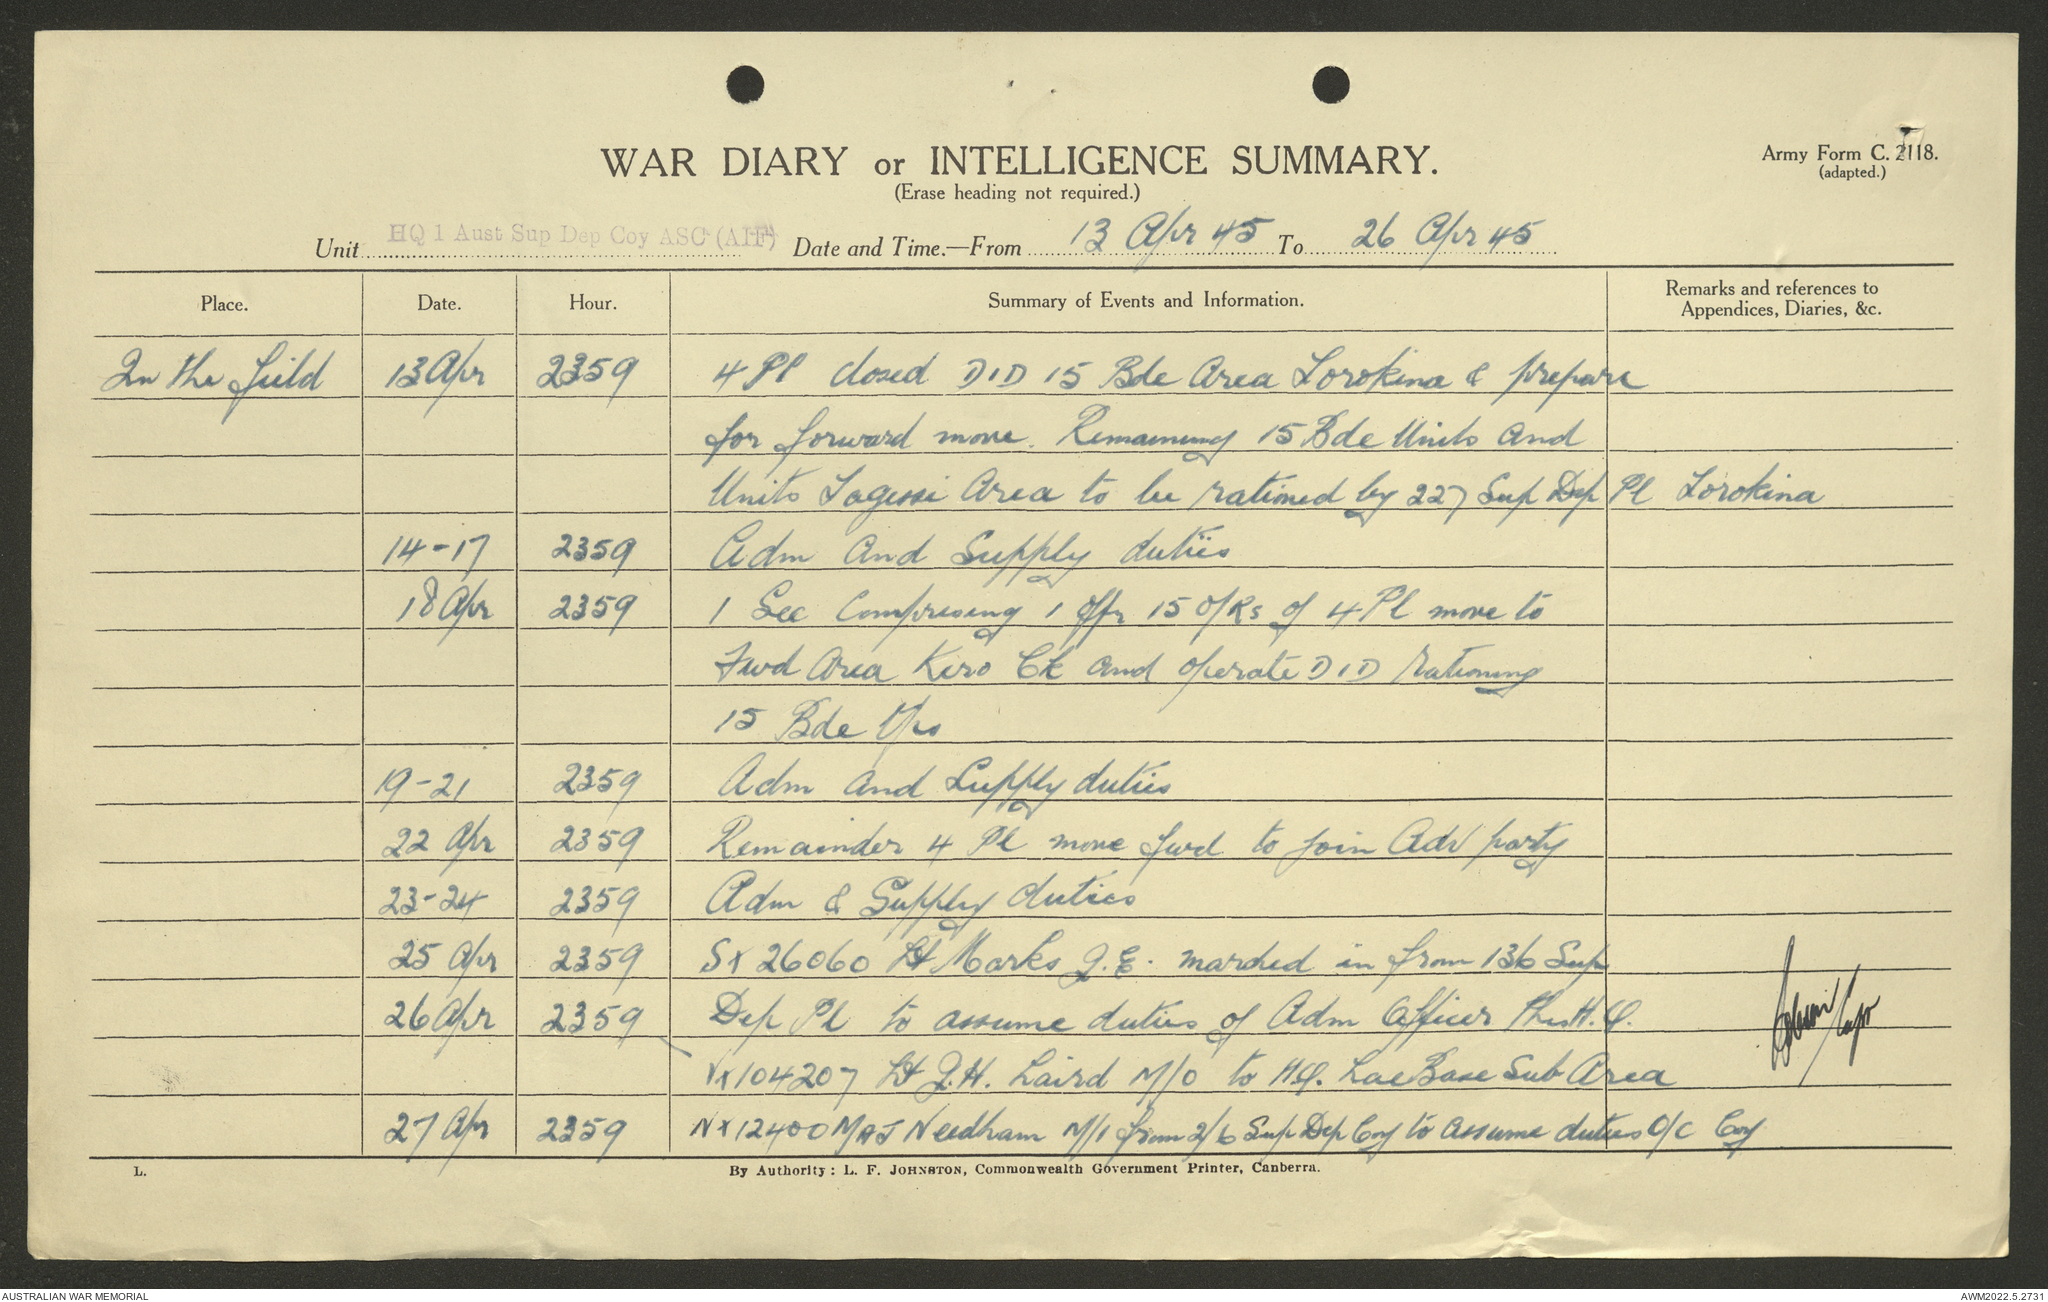 WAR DIARY or INTELLIGENCE SUMMARY.
(Erase heading not required.)
Army Form C. 2118.
(adapted.)
Unit HQ 1 Aust Sup Dep Coy ASC (AIF) Date and Time.—From 13 Apr 45 To 26 Apr 45
Place. Date. Hour. Summary of Events and Information. Remarks and references to
Appendices, Diaries, &c.
In the field 13 Apr 2359 4 Pl closed DID 15 Bde Area Torokina & prepare
for forward move. Remaining 15 Bde Units and
Units Tagessi Area to be rationed by 227 Sup Dep Pl Torokina
14-17 2359 Adm and Supply duties
18 Apr 2359 1 Sec Compresing 1 Offr 15 O/Rs of 4 Pl move to
Fwd Area Kero Ck and operate DID rationing
15 Bde tps
19-21 2359 Adm and Supply duties
22 Apr 2359 Remainder 4 Pl move fwd to join Adv party
23-24 2359 Adm & Supply duties
25 Apr 2359 SX 26060 Lt Marks J.E. marched in from 136 Sup
26 Apr 2359 Dep Pl to assume duties of Adm Officer this H.Q.
NX104207 Lt J.H. Laird M/O to HQ. Lae Base Sub Area
27 Apr 2359 NX12400 MAJ Needham M/I from 2/6 Sup Dep Coy to assume duties O/C Coy
L.
By Authority: L. F. JOHNSTON, Commonwealth Government Printer, Canberra.
AUSTRALIAN WAR MEMORIAL
AWM2022.5.2731